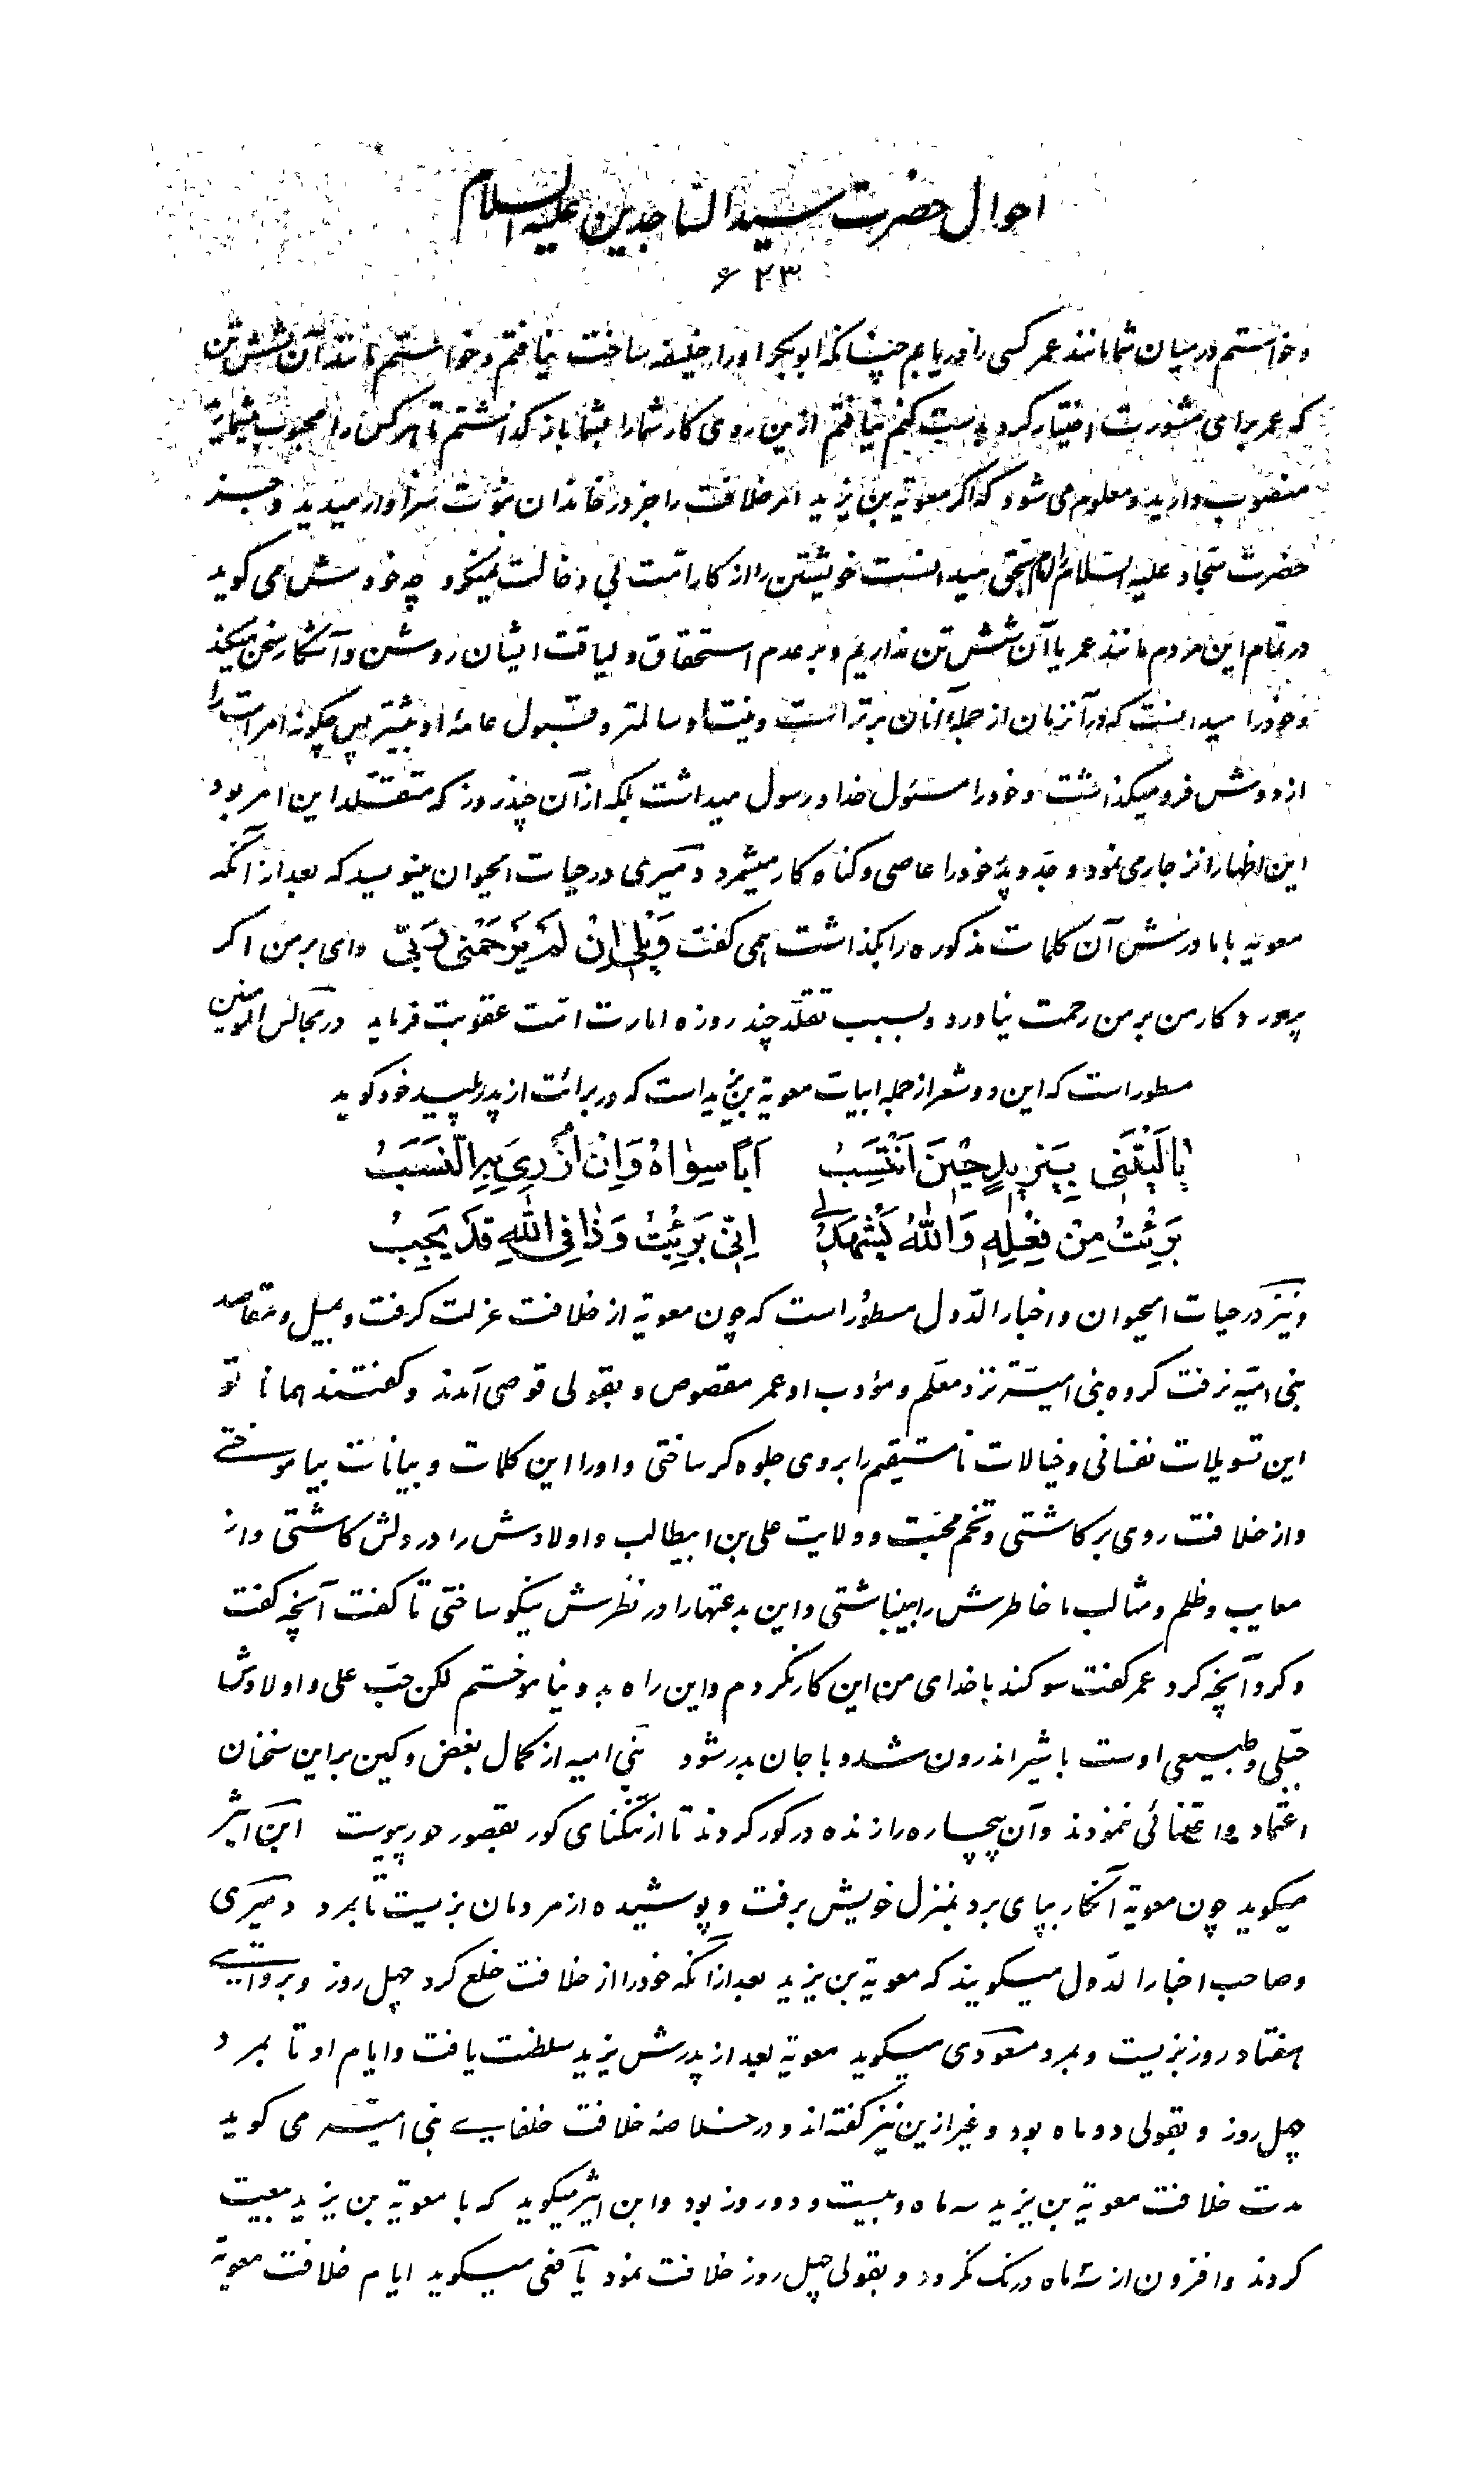 احوال حضرت سید الساجدین علیه السلام
۶۲۳
و خواستم در میان شما مانند عمر کسی را دریابم چنانکه ابوبکر او را خلیفه ساخت نیافتم و خواستم مانند آن شش تن
که عمر برای مشورت اختیار کرد بدست کنم نیافتم ازین روی کار شما را بشما باز گذاشتم تا هر کس را محبوب بشمارید
منصوب دارید و معلوم می شود که اگر معویة بن یزید امر خلافت را جز در خاندان نبوّت سزاوار میدید و جز
حضرت سجّاد علیه السّلام را امام بحق میدانست خویشتن را از کار امّت بی دخالت نمیکرد چه خودش می گوید
در تمام این مردم مانند عمر یا آن شش تن نداریم و بر عدم استحقاق و لیاقت ایشان روشن و آشکار سخن میکند
و خود را میدانست که در آنزمان از جملۀ آنان برتر است و نیتش سالمتر و قبول عامۀ او بیشتر پس چگونه امر امّت را
از دوش فرو میگذاشت و خود را مسئول خدا و رسول میداشت بلکه از آن چند روز که متقلّد این امر بود
این اظهار انزجار می نمود و جدّ و پدر خود را عاصی و گناه کار میشمرد دمیری در حیات الحیوان مینویسد که بعد از آنکه
معویه با مادرش آن کلمات مذکوره را بگذاشت همی گفت وَیْلی اِنْ لَمْ یَرْحَمْنی رَبّی وای بر من اگر
پرورد کار من بر من رحمت نیاورد و بسبب تقلّد چند روزه امارت امّت عقوبت فرماید در مجالس المؤمنین
مسطور است که این دو شعر از جمله ابیات معویة بن یزید است که در برائت از پدر پلید خود گوید
یا لَیْتَنی بِیَزیدٍ حینَ اَنْتَسِبُ اَباً سِواهُ وَاِنْ اَزْری بِیَ النَّسَبُ
بَرِئْتُ مِنْ فِعْلِهِ وَاللهُ یَشْهَدُ لی اِنّی بَرِئْتُ وَذا فِی اللهِ قَدْ یَجِبُ
و نیز در حیات الحیوان و اخبار الدّول مسطور است که چون معویة از خلافت عزلت گرفت و بمیل و مقاصد
بنی امیّه نرفت گروه بنی امیّة نزد معلّم و مؤدب او عمر مقصوص و بقولی قوصی آمدند و گفتند همانا تو
این تسویلات نفسانی و خیالات نا مستقیم را بروی جلوه گر ساختی و او را این کلمات و بیانات بیاموختی
و از خلافت روی بر کاشتی و تخم محبّت و ولایت علی بن ابیطالب و اولادش را در دلش کاشتی و از
معایب و ظلم و مثالب ما خاطرش را بینباشتی و این بدعتها را در نظرش نیکو ساختی تا گفت آنچه گفت
و کرد آنچه کرد عمر گفت سوگند با خدای من این کار نکردم و این راه بدو نیاموختم لکن حبّ علی و اولادش
جبّلی و طبیعی اوست با شیر اندرون شد و با جان بدر شود بنی امیه از کمال بغض و کین بر این سخنان
اعتماد و اعتنائی ننمودند و آن بیچاره را زنده در گور کردند تا از تنگنای گور بقصور حور پیوست ابن اثیر
میگوید چون معویة آنکار بپای برد بمنزل خویش برفت و پوشیده از مردمان بزیست تا بمرد دمیری
و صاحب اخبار الدّول میگویند که معویة بن یزید بعد از آنکه خود را از خلافت خلع کرد چهل روز و بروایتی
هفتاد روز بزیست و بمرد مسعودی میگوید معویة بعد از پدرش یزید سلطنت یافت و ایام او تا بمرد
چهل روز و بقولی دو ماه بود و غیر ازین نیز گفته اند و در خلاصۀ خلافت خلفای بنی امیّه می گوید
مدت خلافت معویة بن یزید سه ماه و بیست و دو روز بود و ابن اثیر میگوید که با معویة بن یزید بیعت
کردند و افزون از سه ماه درنک نکرد و بقولی چهل روز خلافت نمود یافعی میگوید ایام خلافت معویة